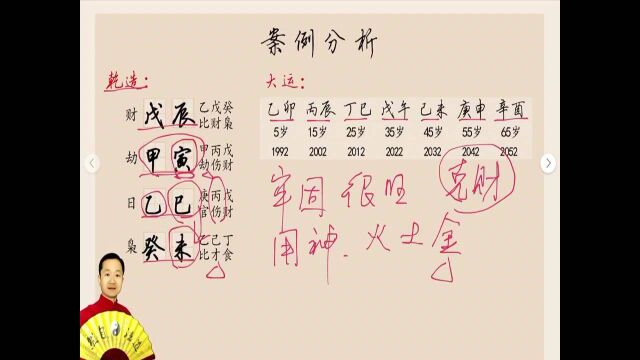 案例分析
乾造：
财 戊辰 乙戊癸
比财枭
劫 甲寅 甲丙戊
劫伤财
日 乙巳 庚丙戊
官伤财
枭 癸未 乙己丁
比才食
大运：
乙卯 丙辰 丁巳 戊午 己未 庚申 辛酉
5岁 15岁 25岁 35岁 45岁 55岁 65岁
1992 2002 2012 2022 2032 2042 2052
牢固 很旺 克财
用神、火土金